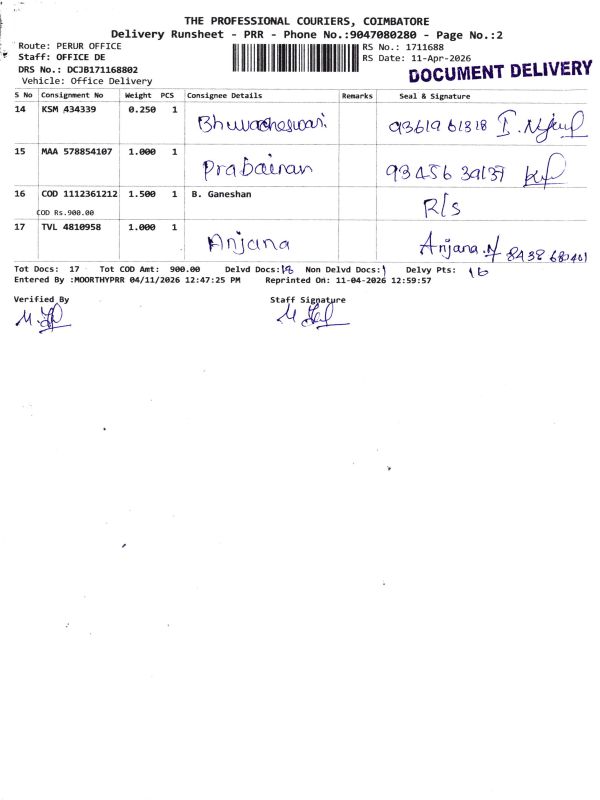 THE PROFESSIONAL COURIERS, COIMBATORE
Delivery Runsheet - PRR - Phone No.:9047080280 - Page No.:2
Route: PERUR OFFICE RS No.: 1711688
Staff: OFFICE DE RS Date: 11-Apr-2026
DRS No.: DCJB171168802
Vehicle: Office Delivery
DOCUMENT DELIVERY
S No Consignment No Weight PCS Consignee Details Remarks Seal & Signature
14 KSM 434339 0.250 1 Bhuvaneshwari 93619 61818
15 MAA 578854107 1.000 1 93456 39137
16 COD 1112361212 1.500 1 B. Ganeshan R/s
COD Rs.900.00
17 TVL 4810958 1.000 1 Anjana Anjana.N
Tot Docs: 17 Tot COD Amt: 900.00 Delvd Docs: Non Delvd Docs: 1 Delvy Pts: 16
Entered By :MOORTHYPRR 04/11/2026 12:47:25 PM Reprinted On: 11-04-2026 12:59:57
Verified By Staff Signature